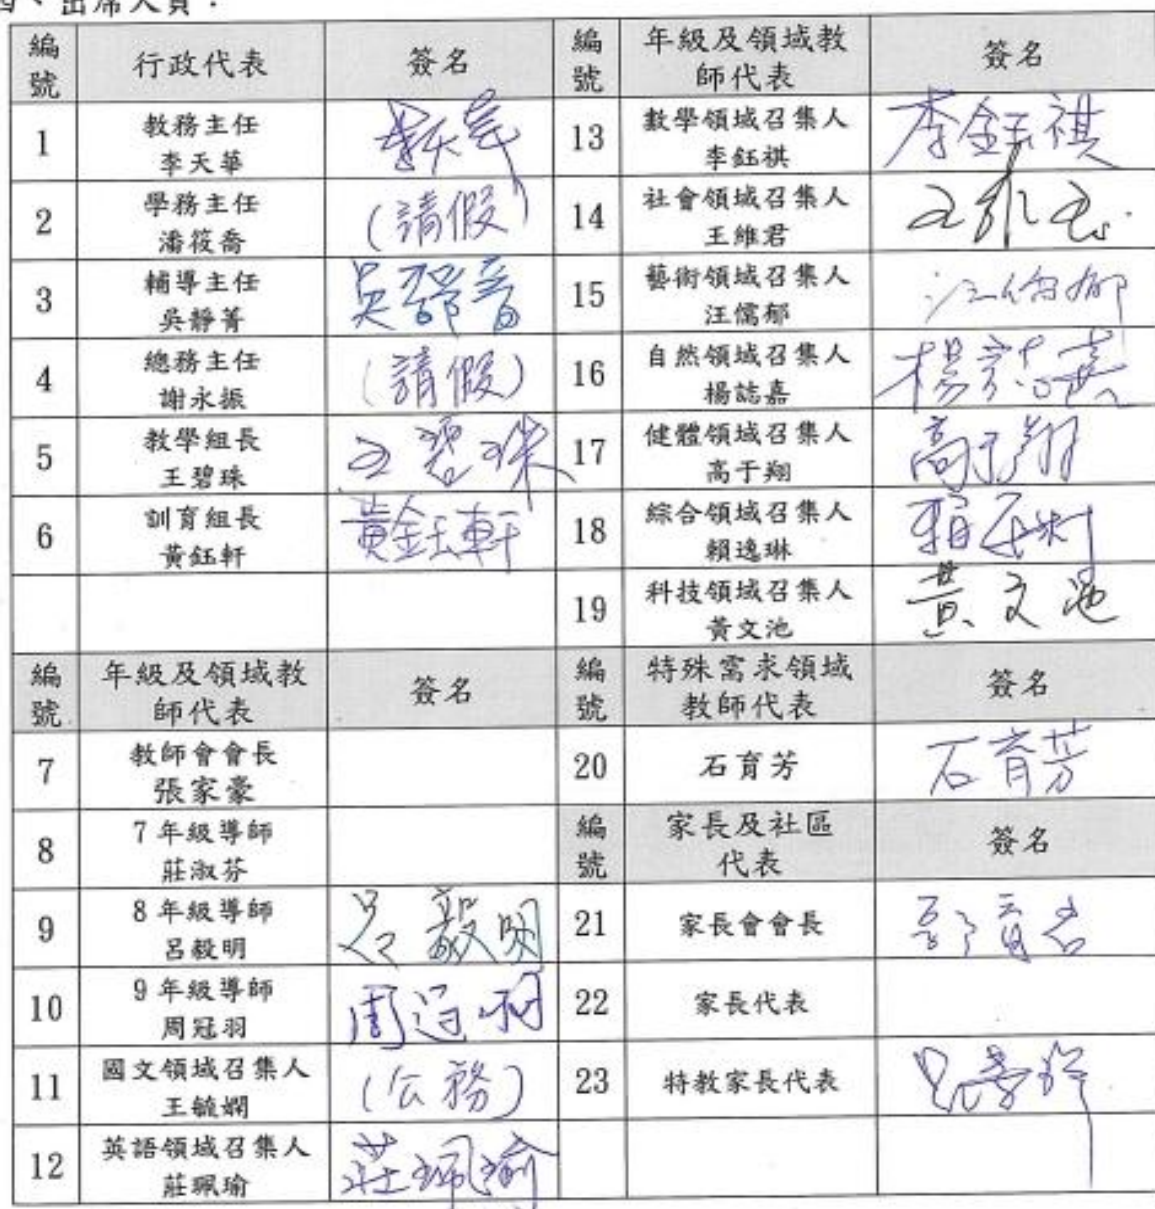 四、出席人員：
編號 行政代表 簽名 編號 年級及領域教師代表 簽名
1 教務主任 李天華 李天華 13 數學領域召集人 李鈺祺 李鈺祺
2 學務主任 潘筱喬 (請假) 14 社會領域召集人 王維君 王維君
3 輔導主任 吳靜菁 15 藝術領域召集人 汪儒郁 汪儒郁
4 總務主任 謝永振 (請假) 16 自然領域召集人 楊誌嘉 楊誌嘉
5 教學組長 王碧珠 王碧珠 17 健體領域召集人 高于翔 高于翔
6 訓育組長 黃鈺軒 黃鈺軒 18 綜合領域召集人 賴逸琳 賴逸琳
19 科技領域召集人 黃文池 黃文池
編號 年級及領域教師代表 簽名 編號 特殊需求領域教師代表 簽名
7 教師會會長 張家豪 20 石育芳 石育芳
8 7年級導師 莊淑芬 編號 家長及社區代表 簽名
9 8年級導師 呂毅明 呂毅明 21 家長會會長
10 9年級導師 周冠羽 周冠羽 22 家長代表
11 國文領域召集人 王毓嫻 (公務) 23 特教家長代表
12 英語領域召集人 莊珮瑜 莊珮瑜